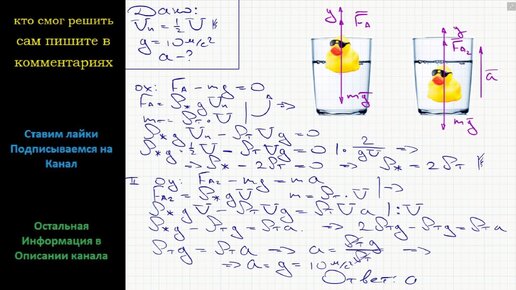 кто смог решить
сам пишите в
комментариях
Ставим лайки
Подписываемся на
Канал
Остальная
Информация в
Описании канала
Дано:
Vп = 1/2 V
g = 10 м/с²
a - ?
y
F̄A
mḡ
y
F̄A2
ā
mḡ
ox: FA - mg = 0
FA = ρж g Vп
m = ρт V
ρж g Vп - ρт V g = 0
ρж g · 1/2 V - ρт V g = 0 | · 2/gV ⇒
⇒ ρж - 2ρт = 0 ⇒ ρж = 2ρт
II oy: FA2 - mg = ma
FA2 = ρж g V m = ρт · V | →
ρж g V - ρт V g = ρт V a | : V
ρж g - ρт g = ρт a. ⇒ 2ρт g - ρт g = ρт a
ρт g = ρт a ⇒ a = ρт g / ρт ⇒
⇒ a = g = 10 м/с²
Ответ: a